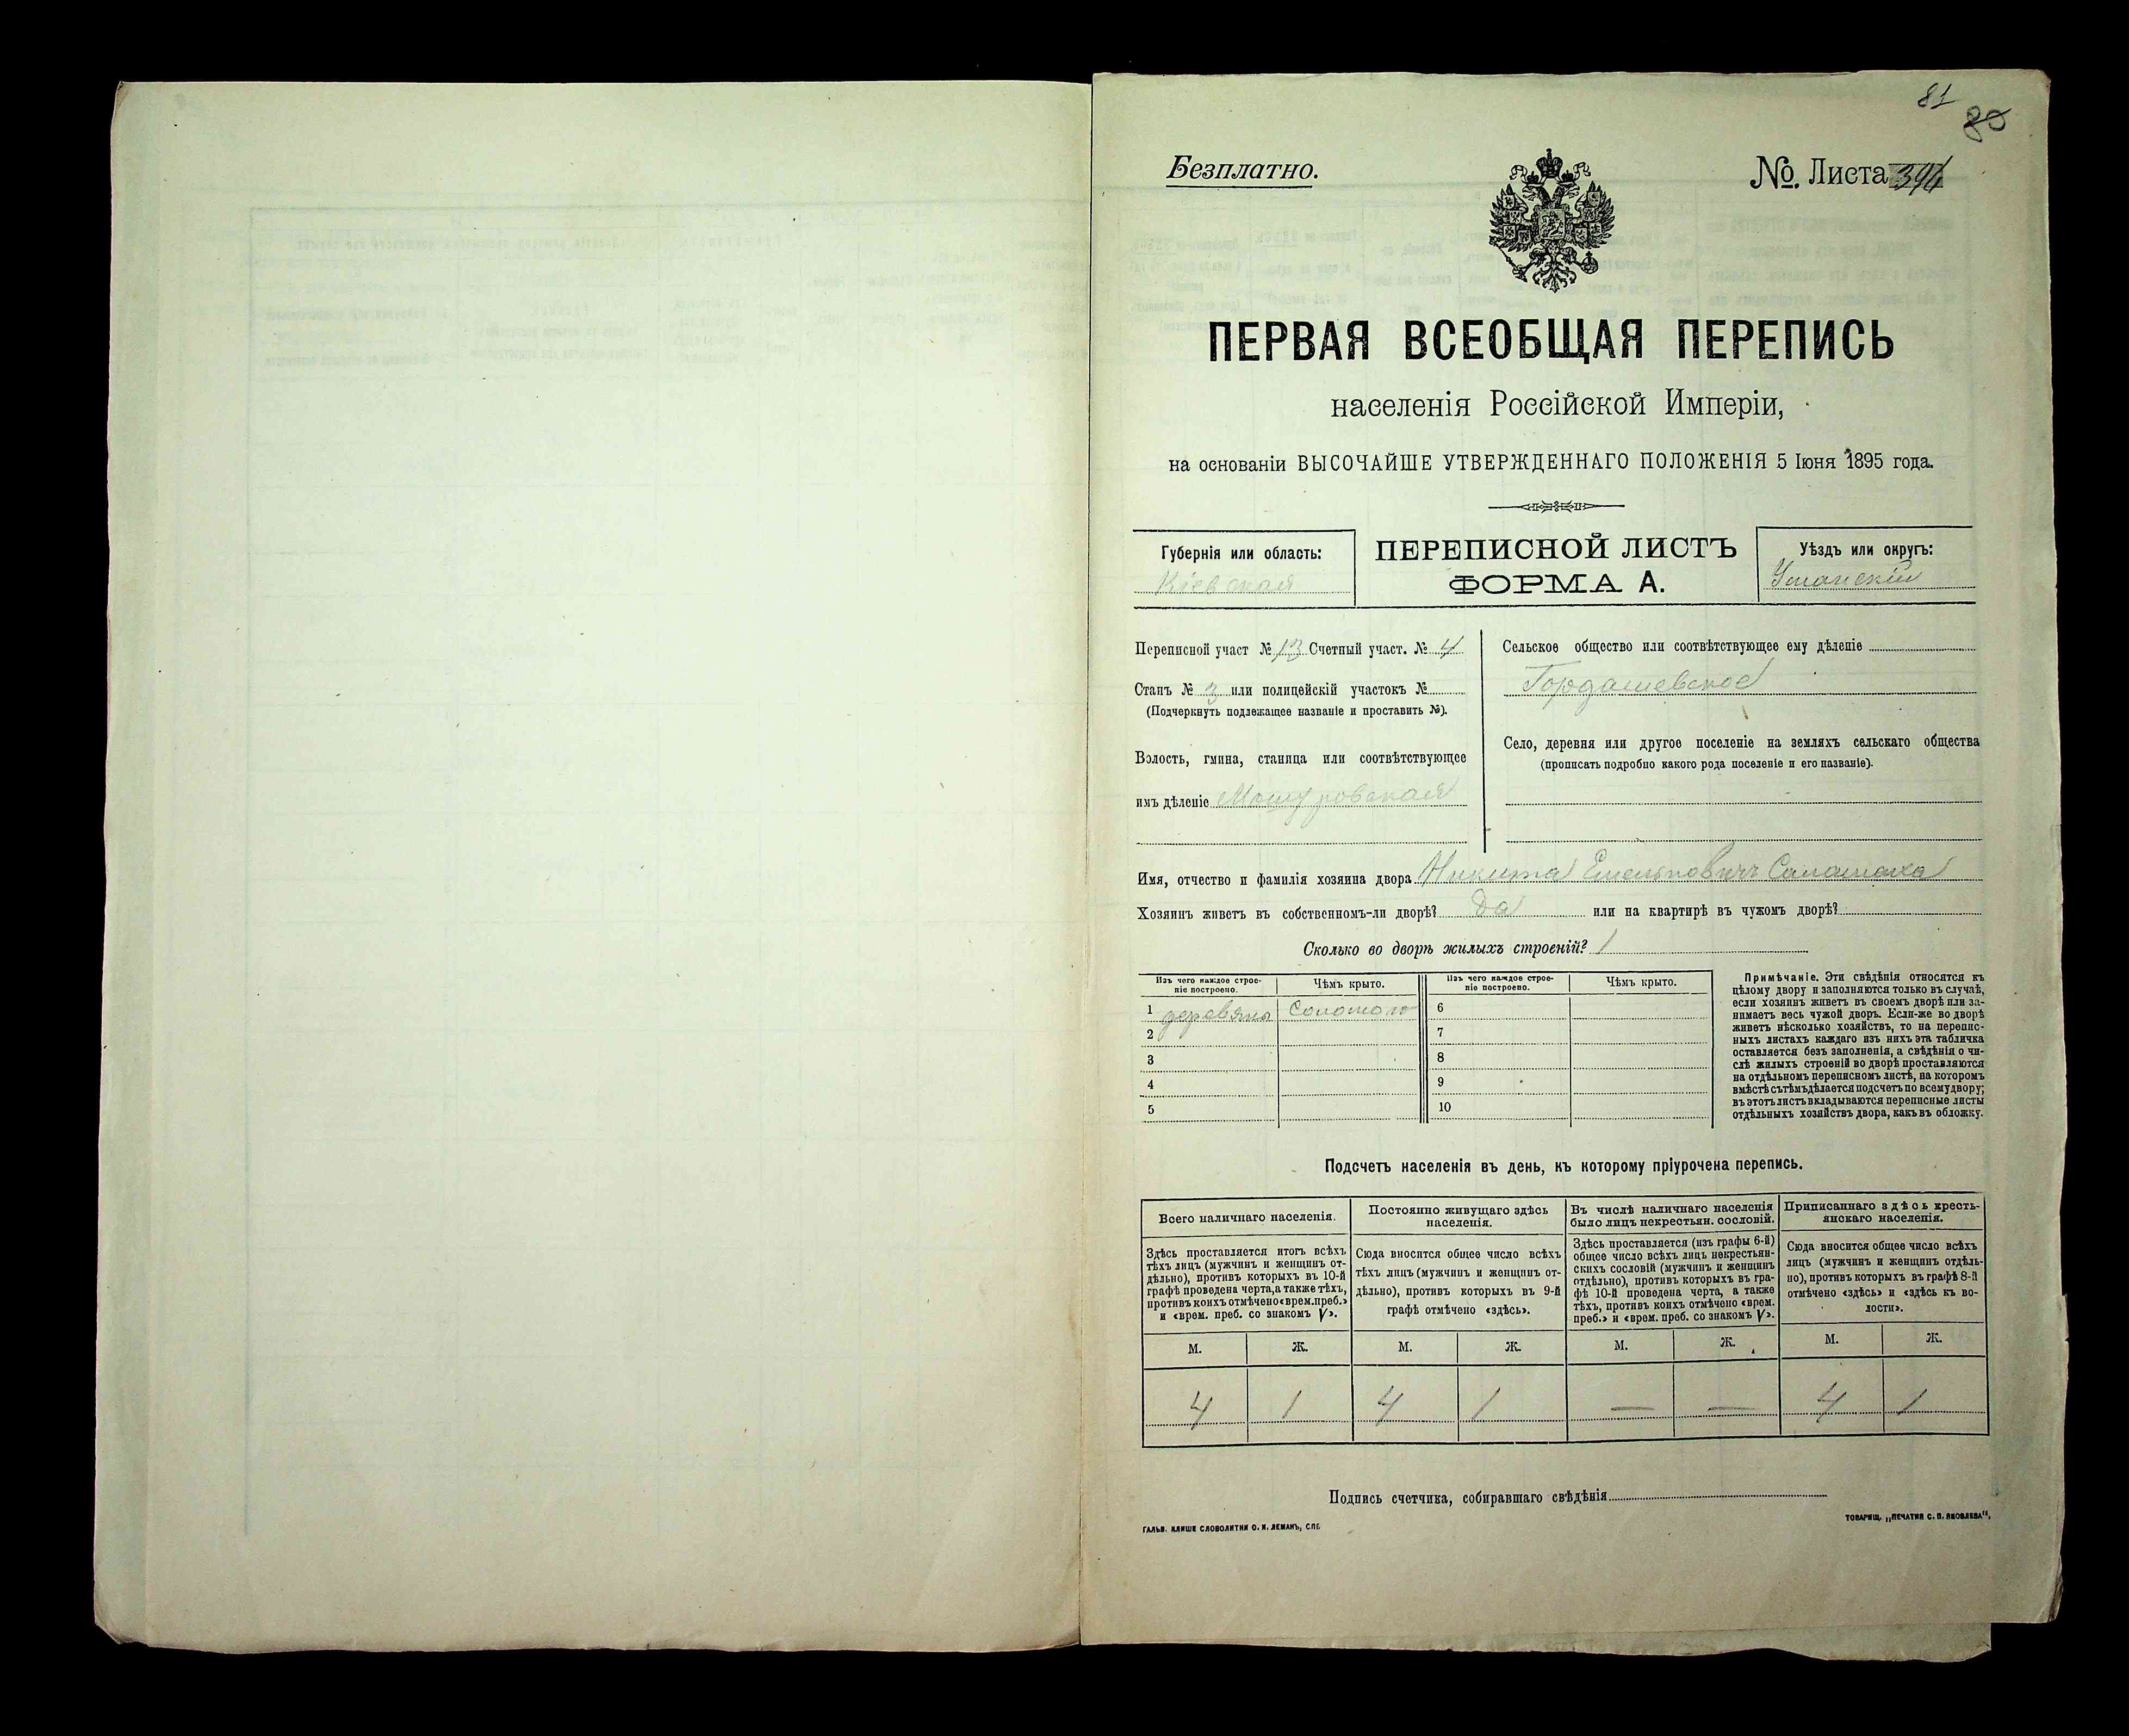 81
80
Безплатно.
№. Листа 394
ПЕРВАЯ ВСЕОБЩАЯ ПЕРЕПИСЬ
населенія Россійской Имперіи,
на основаніи ВЫСОЧАЙШЕ УТВЕРЖДЕННАГО ПОЛОЖЕНІЯ 5 Іюня 1895 года.
Губернія или область:
Кіевская
ПЕРЕПИСНОЙ ЛИСТЪ
ФОРМА А.
Уѣздъ или округъ:
Уманскій
Переписной участ № 13 Счетный участ. № 4
Станъ № 3 или полицейскій участокъ №
(Подчеркнуть подлежащее названіе и проставить №).
Волость, гмина, станица или соотвѣтствующее
имъ дѣленіе Мошуровская
Сельское общество или соотвѣтствующее ему дѣленіе
Гордашевское
Село, деревня или другое поселеніе на земляхъ сельскаго общества
(прописать подробно какого рода поселеніе и его названіе).
Имя, отчество и фамилія хозяина двора Никита Емельяновичъ
Хозяинъ живетъ въ собственномъ-ли дворѣ? да или на квартирѣ въ чужомъ дворѣ?
Сколько во дворѣ жилыхъ строеній? 1
Изъ чего каждое строе-
ніе построено.
Чѣмъ крыто.
Изъ чего каждое строе-
ніе построено.
Чѣмъ крыто.
1 деревяны Соломою 6
2 7
3 8
4 9
5 10
Примѣчаніе. Эти свѣдѣнія относятся къ
цѣлому двору и заполняются только въ случаѣ,
если хозяинъ живетъ въ своемъ дворѣ или за-
нимаетъ весь чужой дворъ. Если-же во дворѣ
живетъ нѣсколько хозяйствъ, то на перепис-
ныхъ листахъ каждаго изъ нихъ эта табличка
оставляется безъ заполненія, а свѣдѣнія о чи-
слѣ жилыхъ строеній во дворѣ проставляются
на отдѣльномъ переписномъ листѣ, на которомъ
вмѣстѣ съ тѣмъ дѣлается подсчетъ по всему двору;
въ этотъ листъ вкладываются переписные листы
отдѣльныхъ хозяйствъ двора, какъ въ обложку.
Подсчетъ населенія въ день, къ которому пріурочена перепись.
Всего наличнаго населенія.
Здѣсь проставляется итогъ всѣхъ
тѣхъ лицъ (мужчинъ и женщинъ от-
дѣльно), противъ которыхъ въ 10-й
графѣ проведена черта, а также тѣхъ,
противъ коихъ отмѣчено «врем. преб.»
и «врем. преб. со знакомъ V».
Постоянно живущаго здѣсь
населенія.
Сюда вносится общее число всѣхъ
тѣхъ лицъ (мужчинъ и женщинъ от-
дѣльно), противъ которыхъ въ 9-й
графѣ отмѣчено «здѣсь».
Въ числѣ наличнаго населенія
было лицъ некрестьян. сословій.
Здѣсь проставляется (изъ графы 6-й)
общее число всѣхъ лицъ некрестьян-
скихъ сословій (мужчинъ и женщинъ
отдѣльно), противъ которыхъ въ гра-
фѣ 10-й проведена черта, а также
тѣхъ, противъ коихъ отмѣчено «врем.
преб.» и «врем. преб. со знакомъ V».
Приписаннаго здѣсь кресть-
янскаго населенія.
Сюда вносится общее число всѣхъ
лицъ (мужчинъ и женщинъ отдѣль-
но), противъ которыхъ въ графѣ 8-й
отмѣчено «здѣсь» и «здѣсь къ во-
лости».
М. Ж. М. Ж. М. Ж. М. Ж.
4 1 4 1 — — 4 1
Подпись счетчика, собиравшаго свѣдѣнія
ГАЛЬВ. КЛИШЕ СЛОВОЛИТНИ О. И. ЛЕМАНЪ, СПБ.
ТОВАРИЩ. „ПЕЧАТНЯ С. П. ЯКОВЛЕВА",